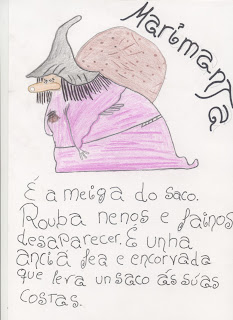 MarimanTa
É a meiga do saco.
Rouba nenos e fainos
desaparecer. É unha
anciá fea e encorvada
que leva un saco ás súas
costas.